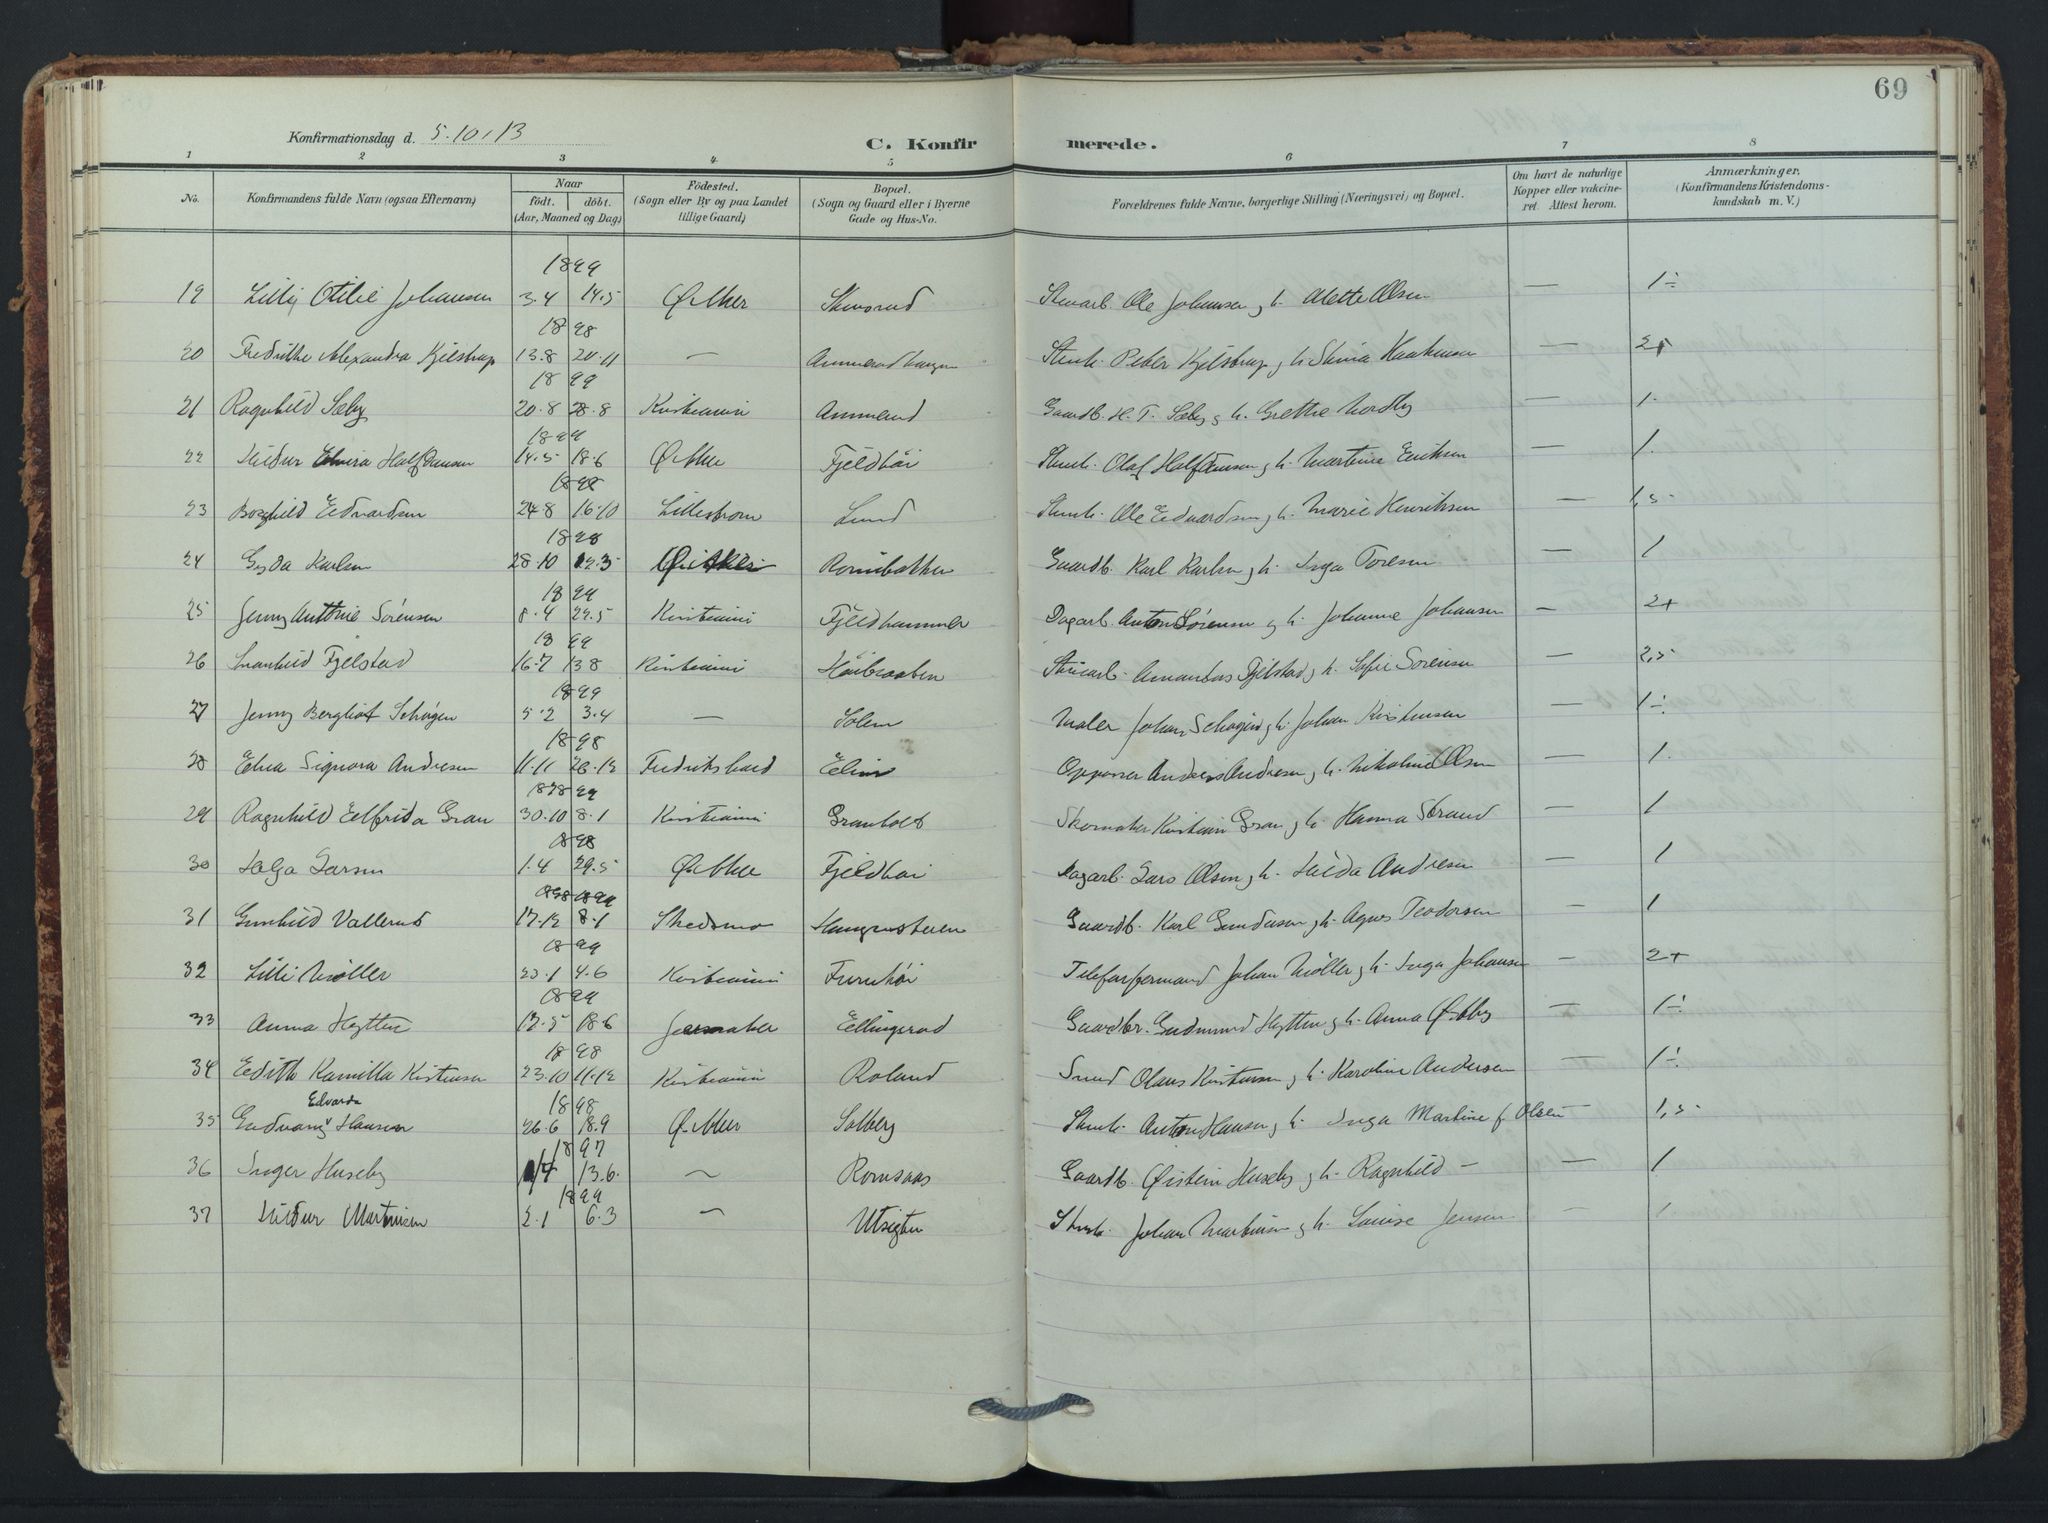 69
Konfirmationsdag d. 5.10.13
C. Konfirmerede.
1 2 3 4 5 6 7 8
No. Konfirmandens fulde Navn (ogsaa Efternavn) Naar födt. döbt. (Aar, Maaned og Dag) Födested. (Sogn eller By og paa Landet tillige Gaard) Bopæl. (Sogn og Gaard eller i Byerne Gade og Hus-No. Forældrenes fulde Navne, borgerlige Stilling (Næringsvei) og Bopæl. Om havt de naturlige Kopper eller vakcineret. Attest herom. Anmærkninger. (Konfirmandens Kristendomskundskab m. V.)
1899
19 Lilly Otilie Johansen 3.4 14.5 Ø. Aker Ole Johansen g h. Alette Olsen — 1÷
1898
20 Alexandra Kjelstrup 13.8 20.11 — Ammerudhaugen Peder Kjelstrup g h. — 2+
1899
21 Ragnhild Sæby 20.8 28.8 Kristiania Ammerud Gaardb. H. T. Sæby g h. Grethe Nordby — 1.
1899
22 Hildur Elvira Halfdansen 14.5 18.6 Ø. Aker Fjeldhöi Olaf Halfdansen g h. Martine Eriksen — 1.
1898
23 Borghild Edvardsen 24.8 16.10 Lillestrøm Lund Ole Edvardsen g h. Marie Henriksen — 1,5
1898
24 Gyda Karlsen 28.10 Ø. Aker Romsbakken Gaardb. Karl Karlsen g h. Inga Toresen — 1
1899
25 Jenny Antonie Sörensen 8.4 29.5 Kristiania Fjeldhammer Dagarb. Anton Sörensen g h. Johanne Johansen — 2+
1899
26 Fjelstad 16.7 13.8 Kristiania Höibraaten Fjelstad g h. Sofie Sörensen — 2,5
1899
27 Jenny Bergliot Schøgen 5.2 3.4 — Solem Maler Johan Schøgen g h. Johan Kristensen — 1÷
1898
28 Elna Signora Andresen 11.11 26.12 Fredrikshald Elim Oppasser Anders Andresen g h. Nikoline Olsen — 1.
1898 99
29 Ragnhild Elfrida Gran 30.10 8.1 Kristiania Granholt Skomaker Kristian Gran g h. Hanna Strand — 1
1898
30 Helga Larsen 1.4 29.5 Ø. Aker Fjeldhöi Dagarb. Lars Olsen g h. Hilda Andresen — 1
1898 1899
31 Gunhild Vallerud 17.12 8.1 Skedsmo Haugensteen Gaardb. Karl Gundersen g h. Agnes Teodorsen — 1
1899
32 Lilli Möller 23.1 4.6 Kristiania Furuhöi Telefonformand Johan Möller g h. Inga Johansen — 2+
1899
33 Anna Hytten 13.5 18.6 Ellingsrud Gaardbr. Gudmund Hytten g h. Anna Østby — 1÷
1898
34 Edith Kamilla Kristensen 23.10 11.12 Kristiania Roland Smed Olaus Kristensen g h. Karoline Andersen — 1÷
Edvarda 1898
35 Hansen 26.6 18.9 Ø. Aker Solberg Anton Hansen g h. Inga Martine f. Olsen — 1,5
1897
36 Inger Huseby 13.6. — Romsaas Gaardb. Øistein Huseby g h. Ragnhild — — 1
1899
37 Hildur Martinsen 2.1 6.3 — Utsigten Johan Martinsen g h. Louise Jensen — 1